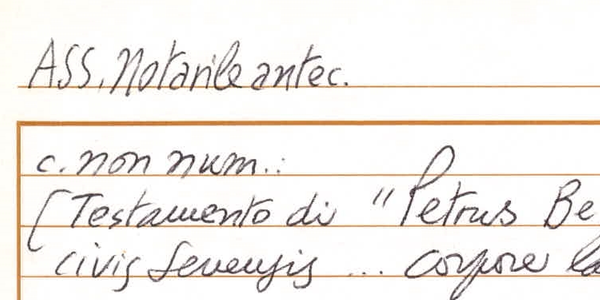 ASS. Notarile antec.
c. non num.:
[Testamento di "Petrus Be
civis Senensis ... corpore la